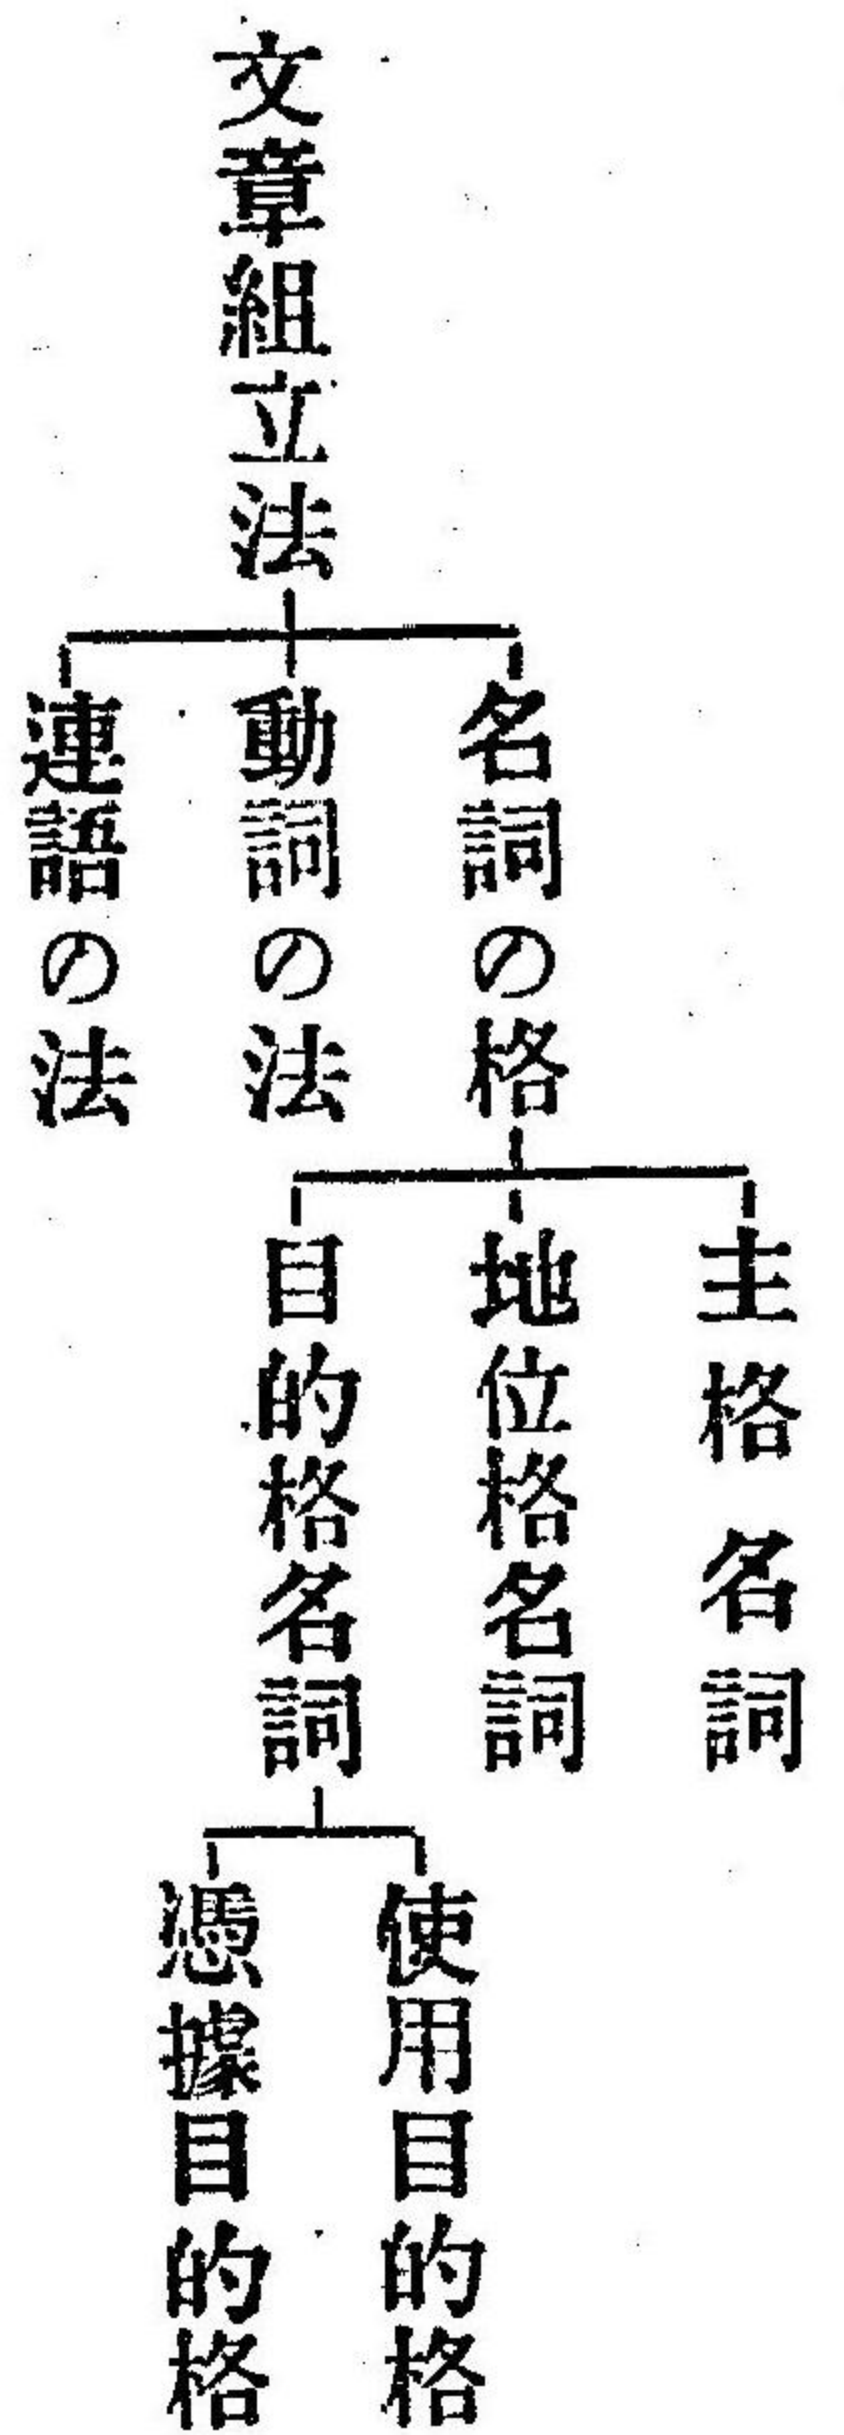 文章組立法
名詞の格
動詞の法
連語の法
主格名詞
地位格名詞
目的格名詞
使用目的格
憑據目的格